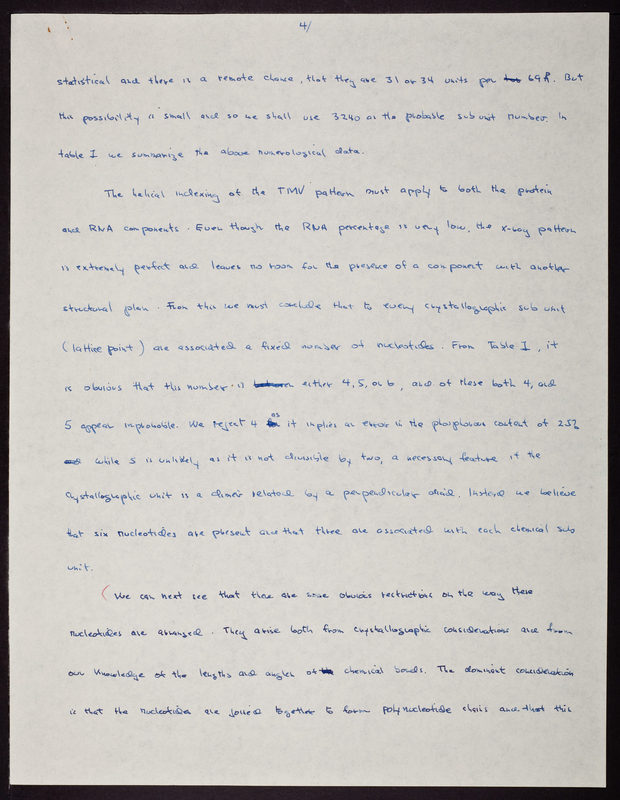 4/
statistical and there is a remote chance, that they are 31 or 34 units per 69Å. But
this possibility is small and so we shall use 3240 as the probable sub unit number. In
table I we summarize the above numerological data.
The helical indexing of the TMV pattern must apply to both the protein
and RNA components. Even though the RNA percentage is very low, the x-ray pattern
is extremely perfect and leaves no room for the presence of a component with another
structural plan. From this we must conclude that to every crystallographic sub unit
(lattice point) are associated a fixed number of nucleotides. From Table I, it
is obvious that this number is between either 4, 5, or 6, and of these both 4, and
5 appear improbable. We reject 4 as it implies an error in the phosphorous content of 25%
and while 5 is unlikely as it is not divisible by two, a necessary feature if the
crystallographic unit is a dimer related by a perpendicular diad. Instead we believe
that six nucleotides are present and that three are associated with each chemical sub
unit.
(We can next see that there are some obvious restrictions on the way these
nucleotides are arranged. They arise both from crystallographic considerations and from
our knowledge of the lengths and angles of chemical bonds. The dominant consideration
is that the nucleotides are joined together to form polynucleotide chains and that this